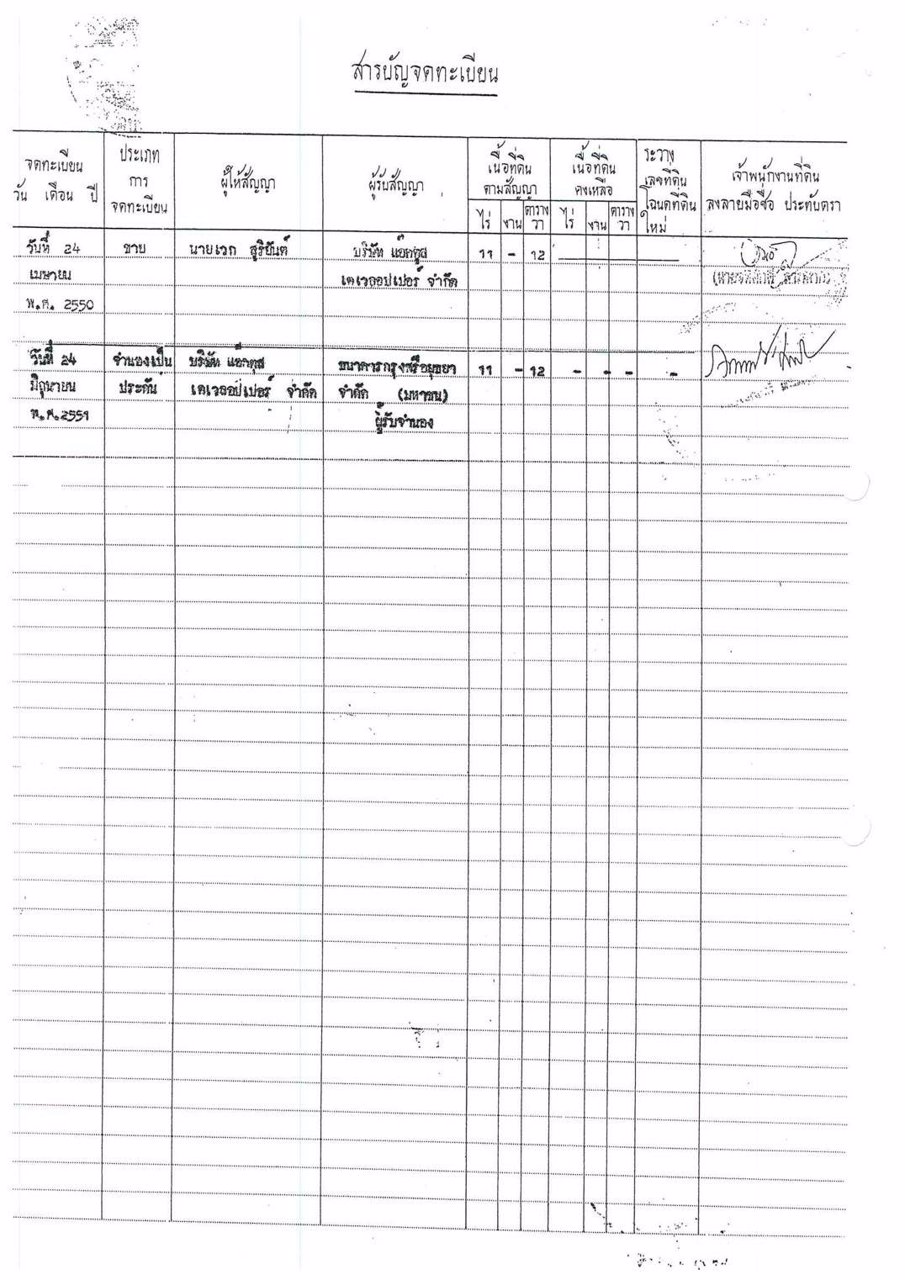 สารบัญจดทะเบียน
จดทะเบียน
วัน เดือน ปี
ประเภท
การ
จดทะเบียน
ผู้ให้สัญญา
ผู้รับสัญญา
เนื้อที่ดิน
ตามสัญญา
ไร่ งาน ตาราง
วา
เนื้อที่ดิน
คงเหลือ
ไร่ งาน ตาราง
วา
ระวาง
เลขที่ดิน
โฉนดที่ดิน
ใหม่
เจ้าพนักงานที่ดิน
ลงลายมือชื่อ ประทับตรา
วันที่ 24 ขาย นายเวก สุริยันต์ บริษัท แอ๊คทูส 11 - 12
เมษายน เดเวลอปเปอร์ จำกัด
พ.ศ. 2550
วันที่ 24 จำนองเป็น บริษัท แอ๊คทูส ธนาคารกรุงศรีอยุธยา 11 - 12 - - - -
มิถุนายน ประกัน เดเวลอปเปอร์ จำกัด จำกัด (มหาชน)
พ.ศ.2551 ผู้รับจำนอง